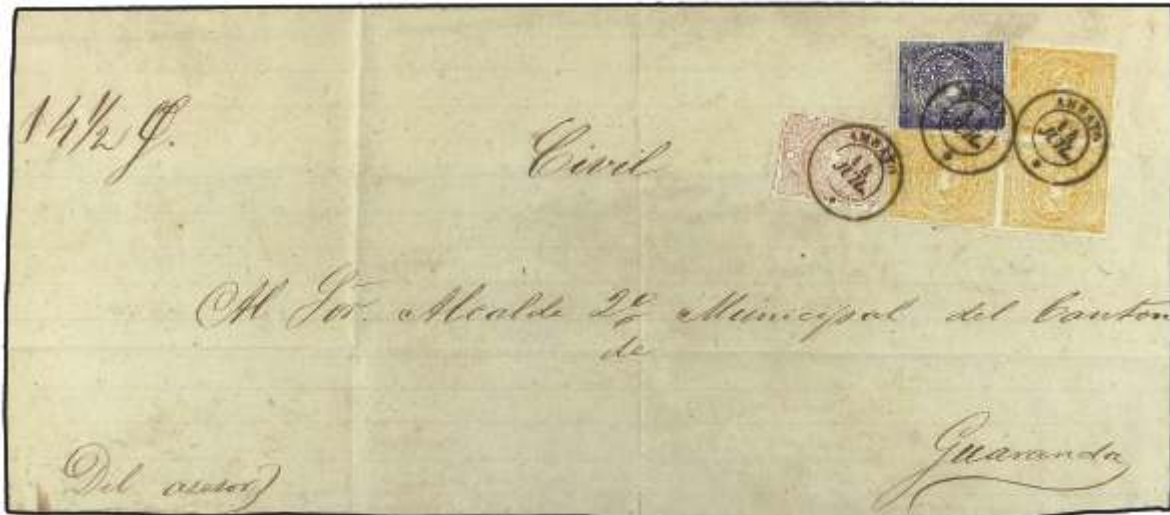 14 1/2 ₰.
Civil
AMBATO
14
JUL
AMBATO
AMBATO
14
JUL
Al Sor. Alcalde 2º Municipal del Canton
de
Guaranda
Del asesor